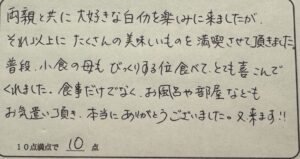 両親と共に大好きな白切を楽しみに来ましたが、
それ以上にたくさんの美味しいものを満喫させて頂きました。
普段、小食の母もびっくりする位食べて、とても喜こんで
くれました。食事だけでなく、お風呂や部屋なども
お気遣い頂き、本当にありがとうございました。又来ます!!
10点満点で 10 点